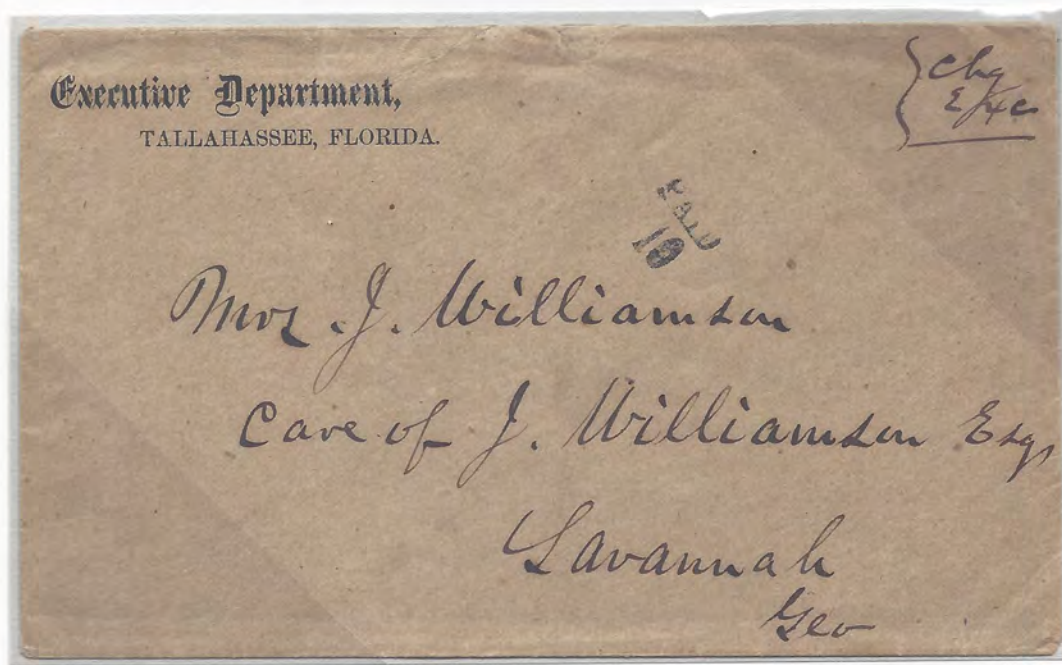 Executive Department,
TALLAHASSEE, FLORIDA.
Chg
PAID
19
Mrs. J. Williamson
Care of J. Williamson Esq,
Savannah
Geo